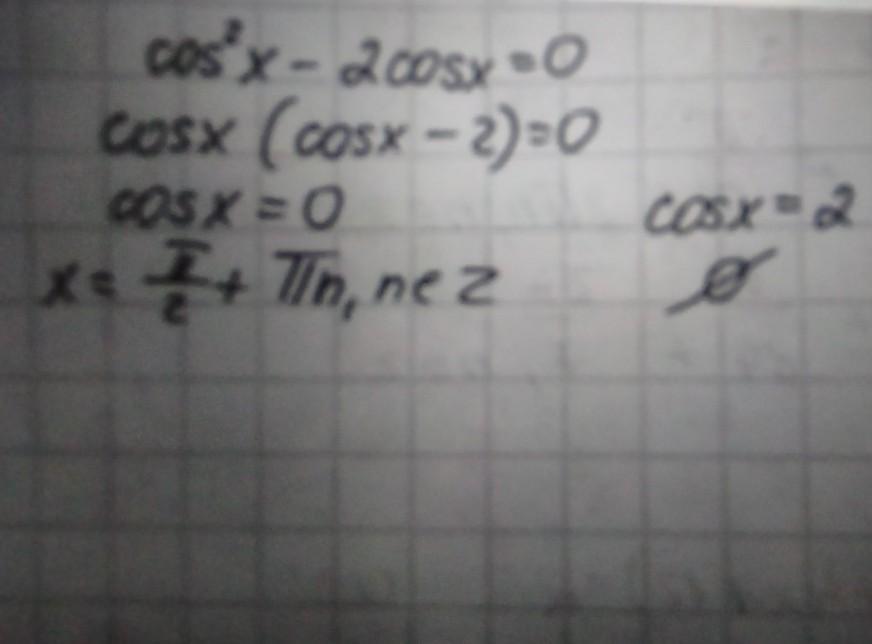 cos²x - 2cosx = 0
cosx (cosx - 2) = 0
cosx = 0 cosx = 2
x = π/2 + πn, n ∈ Z ∅